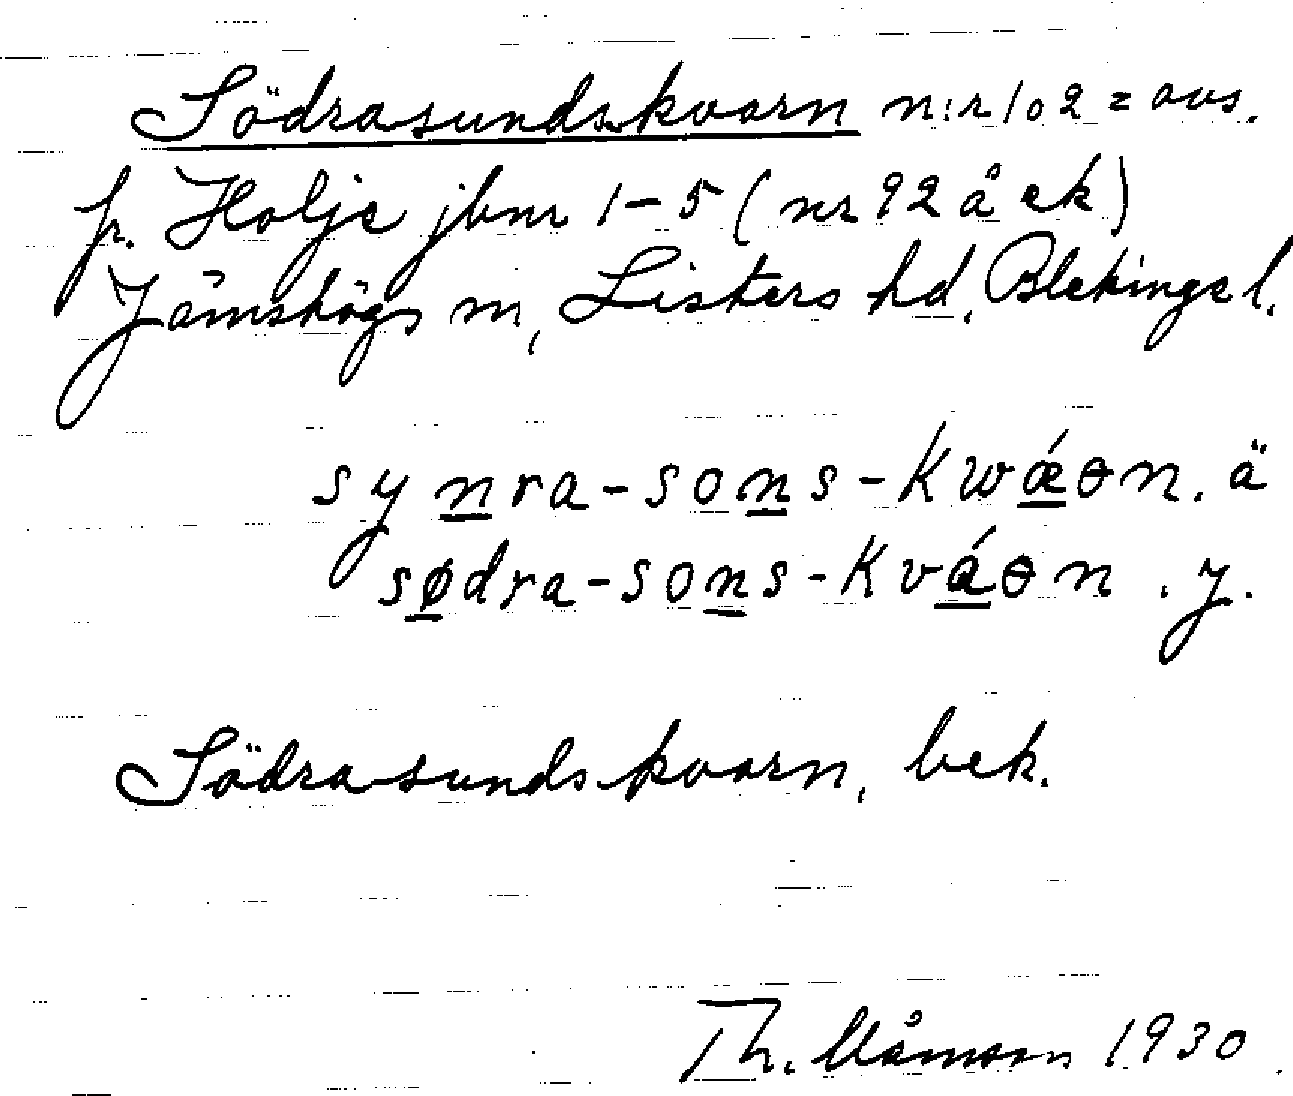 Södrasundskvarn n:r 102 = avs.
fr. Holje jbnr 1-5 (nr 92 å ek)
Jämshögs sn, Listers hd, Blekinge l.
synra-sons-kwǽɵn. ä
sødra-sons-kváɵn. y.
Södrasundskvarn, bek.
Th. Månsson 1930